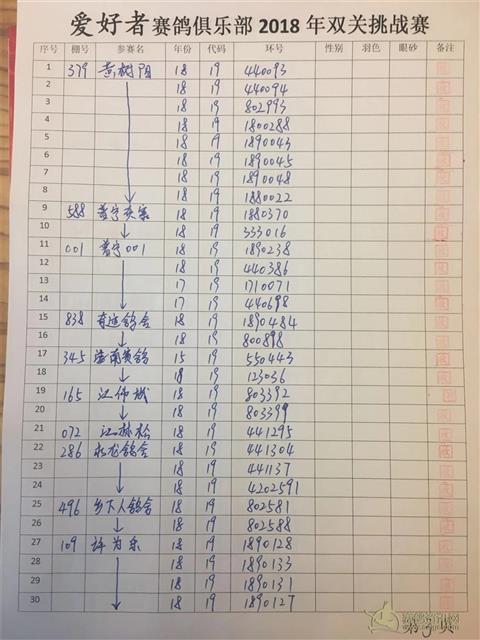 爱好者赛鸽俱乐部 2018 年双关挑战赛
序号 棚号 参赛名 年份 代码 环号 性别 羽色 眼砂 备注
1 379 黄树阳 18 19 440093
2 18 19 440094
3 18 19 802993
4 18 19 1800288
5 18 19 1890043
6 18 19 1890045
7 18 19 1890048
8 18 19 1880022
9 588 普宁 18 19 1880370
10 18 19 333016
11 001 普宁001 18 19 1890238
12 18 19 440386
13 17 19 1710071
14 17 19 440698
15 838 鸽舍 18 19 1890484
16 18 19 800898
17 345 南赛鸽 15 19 550443
18 18 19 123036
19 165 江伟城 18 19 803392
20 18 19 803399
21 072 江赫松 18 19 441295
22 286 龙鸽舍 18 19 441304
23 18 19 441137
24 18 19 4202591
25 496 乡下人鸽舍 18 19 802581
26 18 19 802588
27 109 许为乐 18 19 1890128
28 18 19 1890133
29 18 19 1890131
30 18 19 1890127
第 页